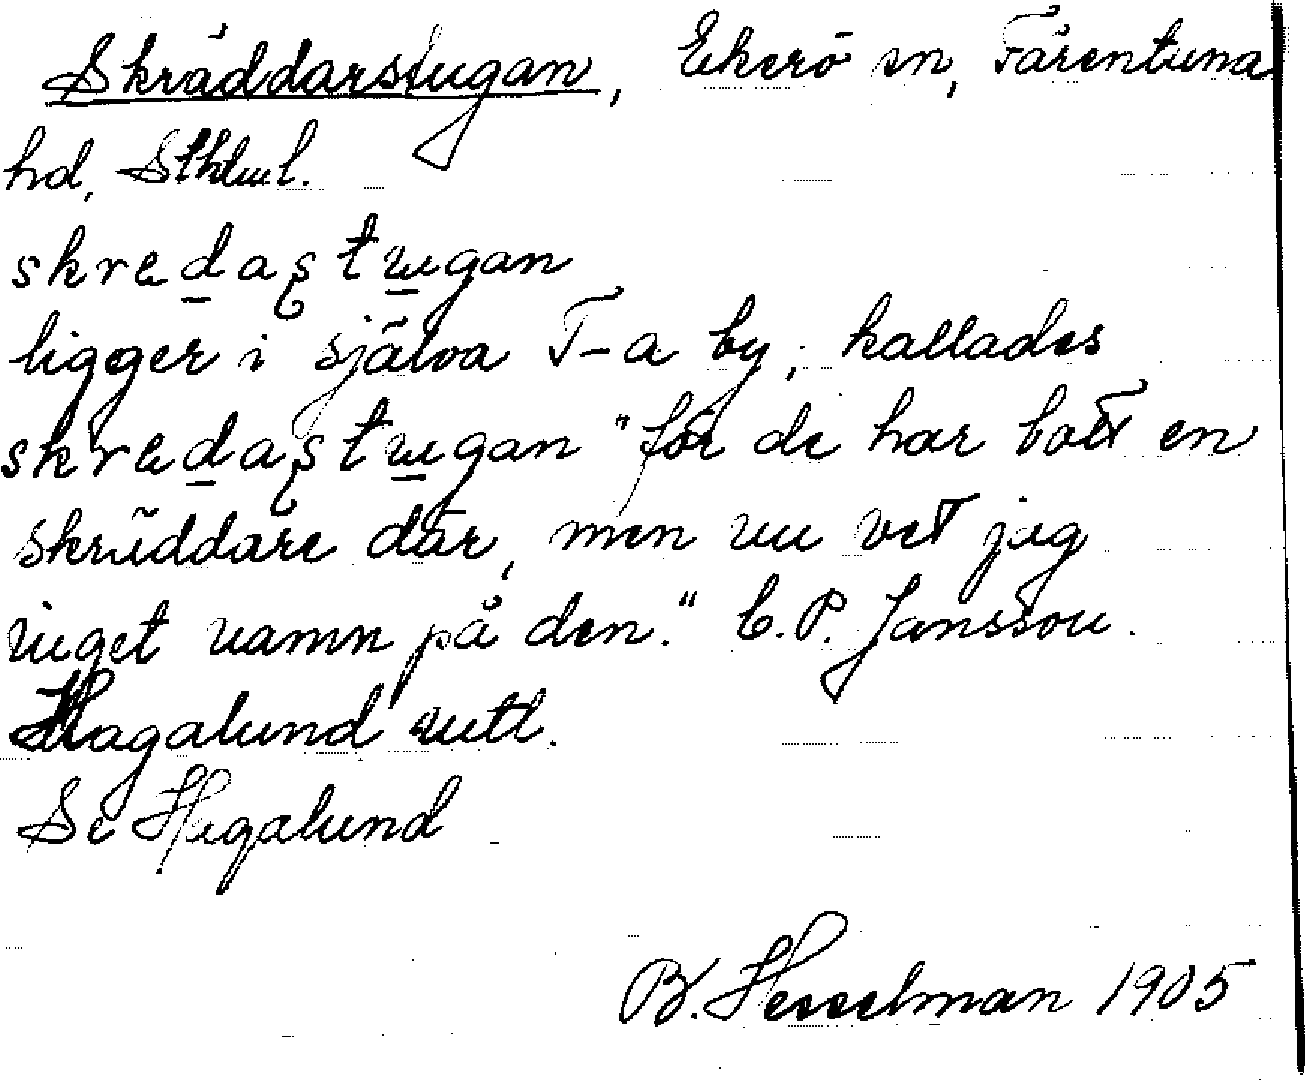 Skräddarstugan, Ekerö sn, Färentuna
hd, Sthlm l.
skredaştugan
ligger i själva T-a by, kallades
skredaştugan "för de har bott en
skräddare där, men nu vet jag
inget namn på den." C.P. Jansson.
Hagalund uttl.
Se Hagalund
B. Hesselman 1905